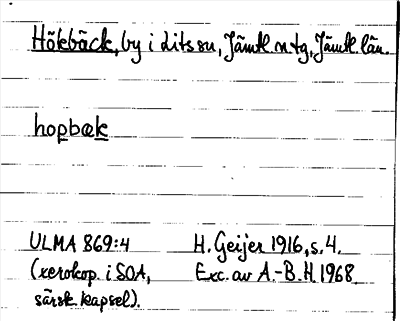 Hökbäck, by i Lits sn, Jämtl n tg, Jämtl. län.
hopbæk
ULMA 869:4 H. Geijer 1916, s. 4.
(xerokop. i SOA, Exc. av A.-B. H. 1968
särsk. kapsel).